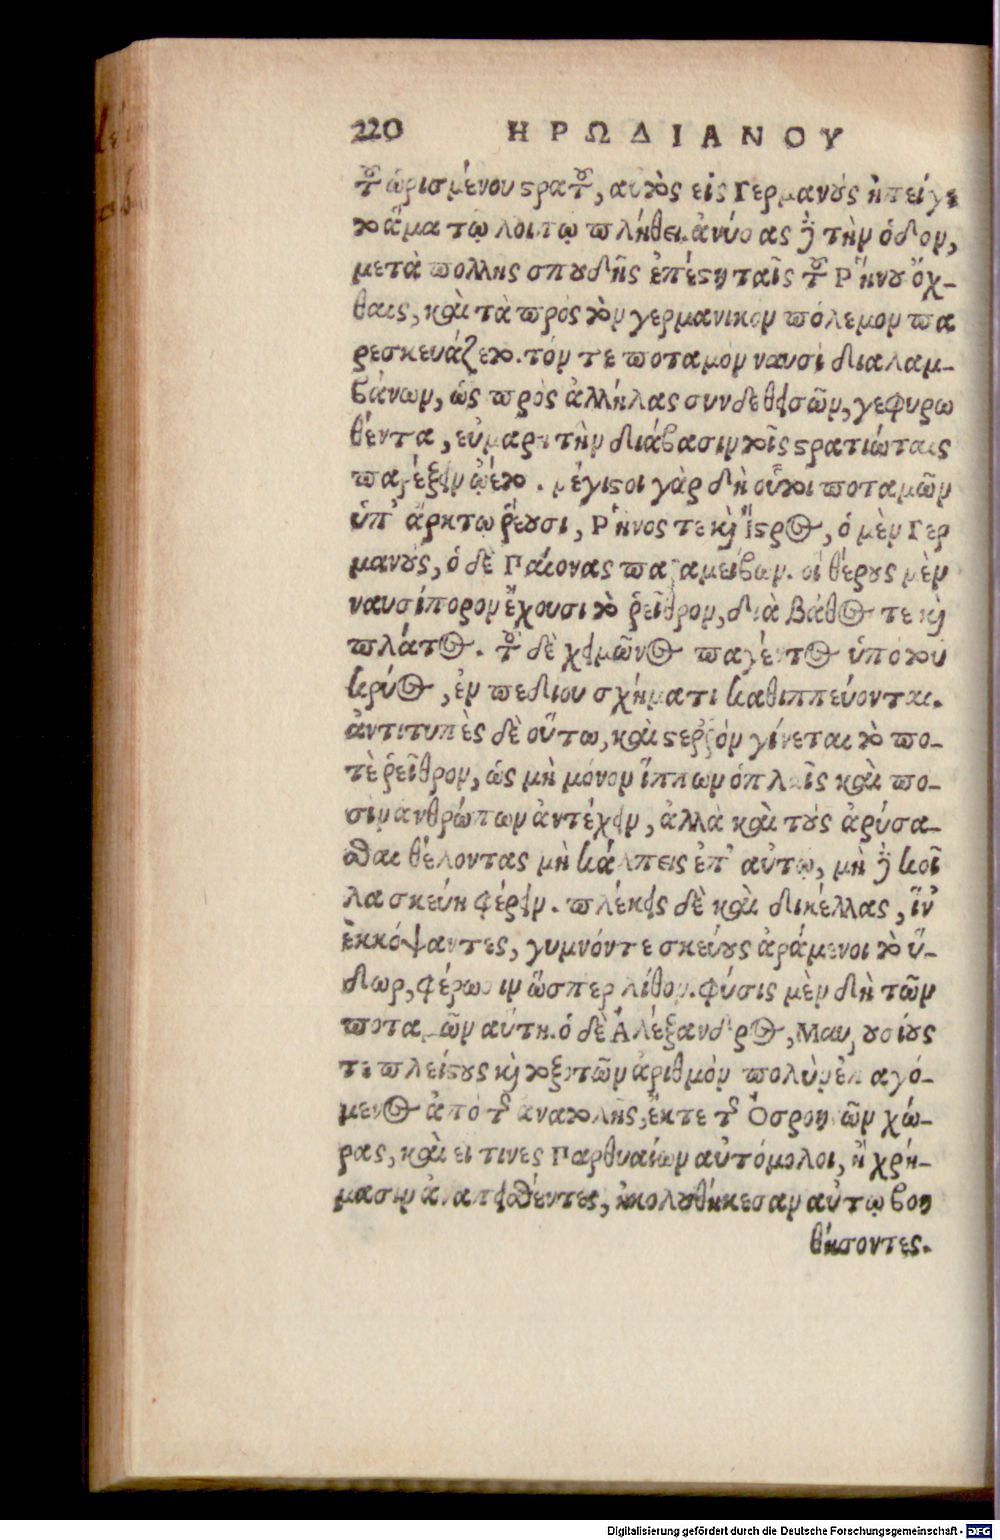 220 ΗΡΩΔΙΑΝΟΥ
τοῦ ὡρισμένου στρατοῦ, αὐτὸς εἰς Γερμανοὺς ἠπείγε
το ἅμα τῷ λοιπῷ πλήθει. ἀνύσας δὲ τὴν ὁδον,
μετὰ πολλης σπουδῆς ἐπέστη ταῖς τοῦ Ρήνου ὄχ-
θαις, καὶ τὰ πρὸς τὸν γερμανικον πόλεμον πα
ρεσκευάζετο. τόν τε ποταμὸν ναυσὶ διαλαμ-
βάνων, ὡς πρὸς ἀλλήλας συνδεθεισῶν, γεφυρω
θέντα, εὐμαρῆ τὴν διάβασιν τοῖς στρατιώταις
παρέξειν ᾤετο. μέγιστοι γὰρ δὴ οὗτοι ποταμῶν
ὑπ' ἄρκτῳ ῥέουσι, Ρῆνος τε καὶ Ἴστρος, ὁ μὲν Γερ
μανοὺς, ὁ δὲ Παίονας παραμείβων. οἱ θέρους μὲν
ναυσίπορον ἔχουσι τὸ ῥεῖθρον, διὰ βάθος τε καὶ
πλάτος. τοῦ δὲ χειμῶνος παγέντος ὑπὸ τοῦ
κρύος, ἐν πεδιου σχήματι καθιππεύονται.
ἀντιτυπὲς δὲ οὕτω, καὶ στερρὸν γίνεται τὸ πο-
τὲ ῥεῖθρον, ὡς μὴ μόνον ἵππων ὁπλαῖς καὶ πο-
σὶν ανθρώπων ἀντέχειν, ἀλλὰ καὶ τοὺς ἀρύσα-
σθαι θέλοντας μὴ κάλπεις ἐπ' αὐτῳ, μὴ δὲ κοῖ
λα σκεύη φέρειν. πλέκεις δὲ καὶ δικέλλας, ἵν'
ἐκκόψαντες, γυμνόν τε σκεύους ἀράμενοι τὸ ὕ-
δωρ, φέρωσιν ὥσπερ λίθον. φύσις μὲν δὴ τῶν
ποταμῶν αὕτη. ὁ δὲ Ἀλέξανδρος, Μαυρουσίους
τε πλείστους καὶ τοξοτῶν ἀριθμὸν πολὺν ἐπαγό-
μενος ἀπὸ τῆς ανατολῆς, ἔκ τε τῆς Ὀσροηνῶν χώ-
ρας, καὶ ει τινες Παρθυαίων αὐτόμολοι, ἢ χρή-
μασιν ἀναπεισθέντες, ἠκολουθήκεσαν αὐτῳ βοη
θήσοντες.
Digitalisierung gefördert durch die Deutsche Forschungsgemeinschaft - DFG